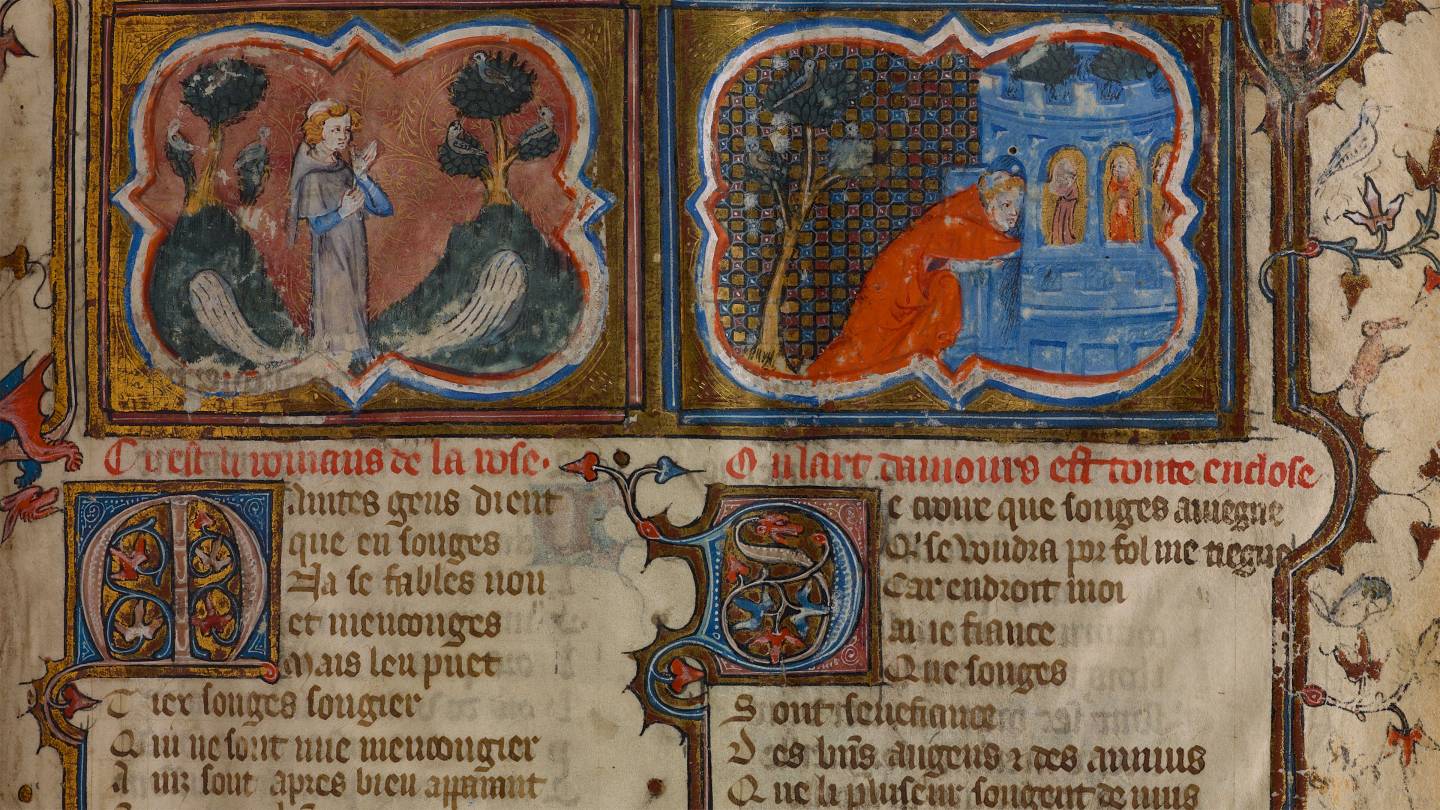 Ci est li romans de la rose.
Maintes gens dient
que en songes
Na se fables non
et menconges
Mais len puet
Tiex songes songier
Qui ne sont mie mencongier
Ainz sont apres bien apparant
Ou lart damours est toute enclose
Je croie que songes aviegne
Qi se voudra por fol me tiegne
Car endroit moi
ai ie fiance
Que songes
Sont senefiance
Des biens augens et des anuius
Que li pluiseur songent de nuis